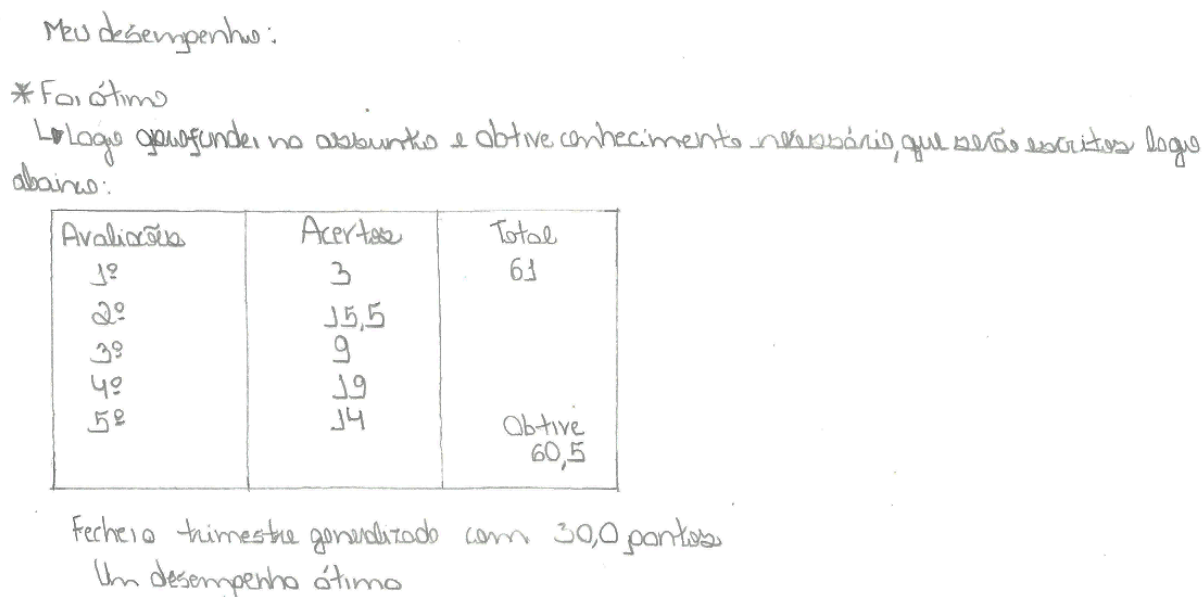 Meu desempenho:
* Foi ótimo
Logo aprofundei no assunto e obtive conhecimento necessário, que serão escritos logo
abaixo:
Avaliações Acertos Total
1º 3 61
2º 15,5
3º 9
4º 19
5º 14 Obtive
60,5
Fechei o trimestre generalizado com 30,0 pontos
Um desempenho ótimo